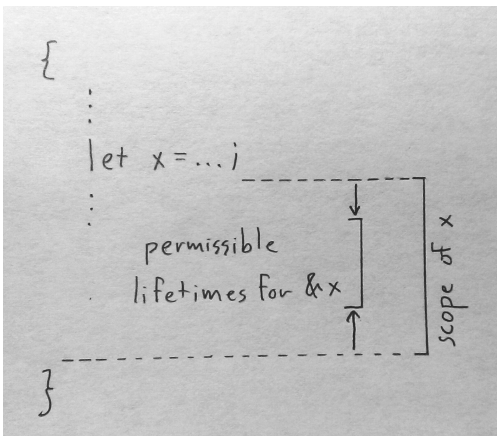 {
⋮
let x = ... ;
⋮
permissible
lifetimes for &x
scope of x
}